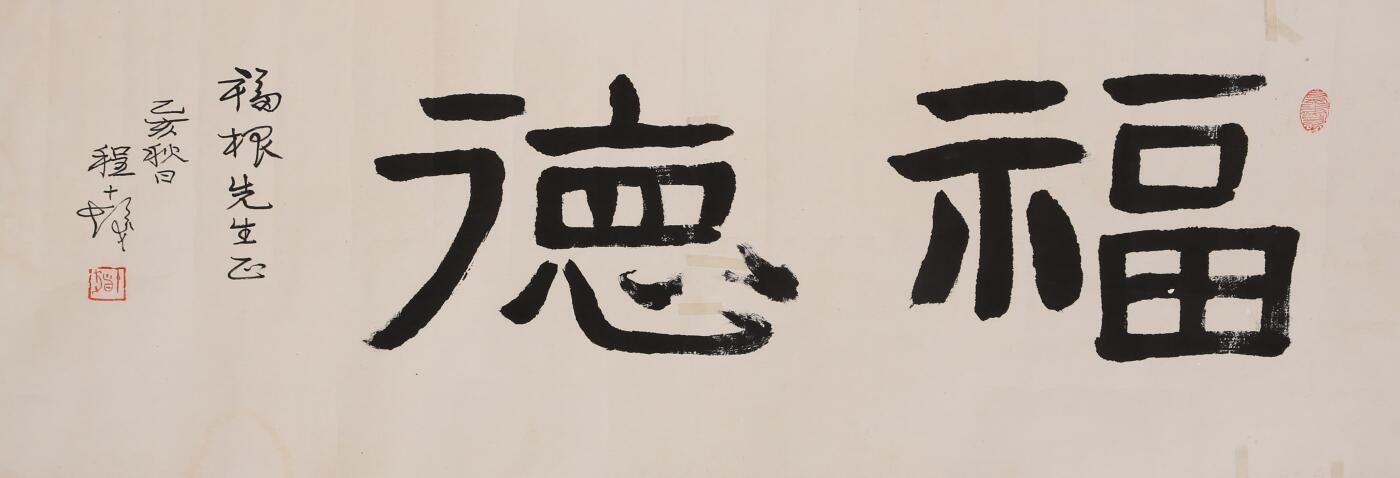 福德
福根先生正
乙亥秋日
程十发